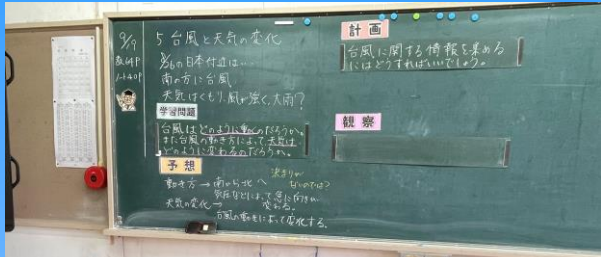 9/19
教64P
ノート40P
5 台風と天気の変化
の日本付近は…
南の方に台風
天気はくもり、風が強く、大雨?
学習問題
台風はどのように動くのだろうか。
また台風の動き方によって、天気は
どのように変わるのだろうか。
予想
動き方→南から北へ
決まりが
ないのでは?
気圧などによって急に向きが
変わる。
天気の変化→
台風の動きによって変化する。
計画
台風に関する情報を集める
にはどうすればいいでしょう。
観察